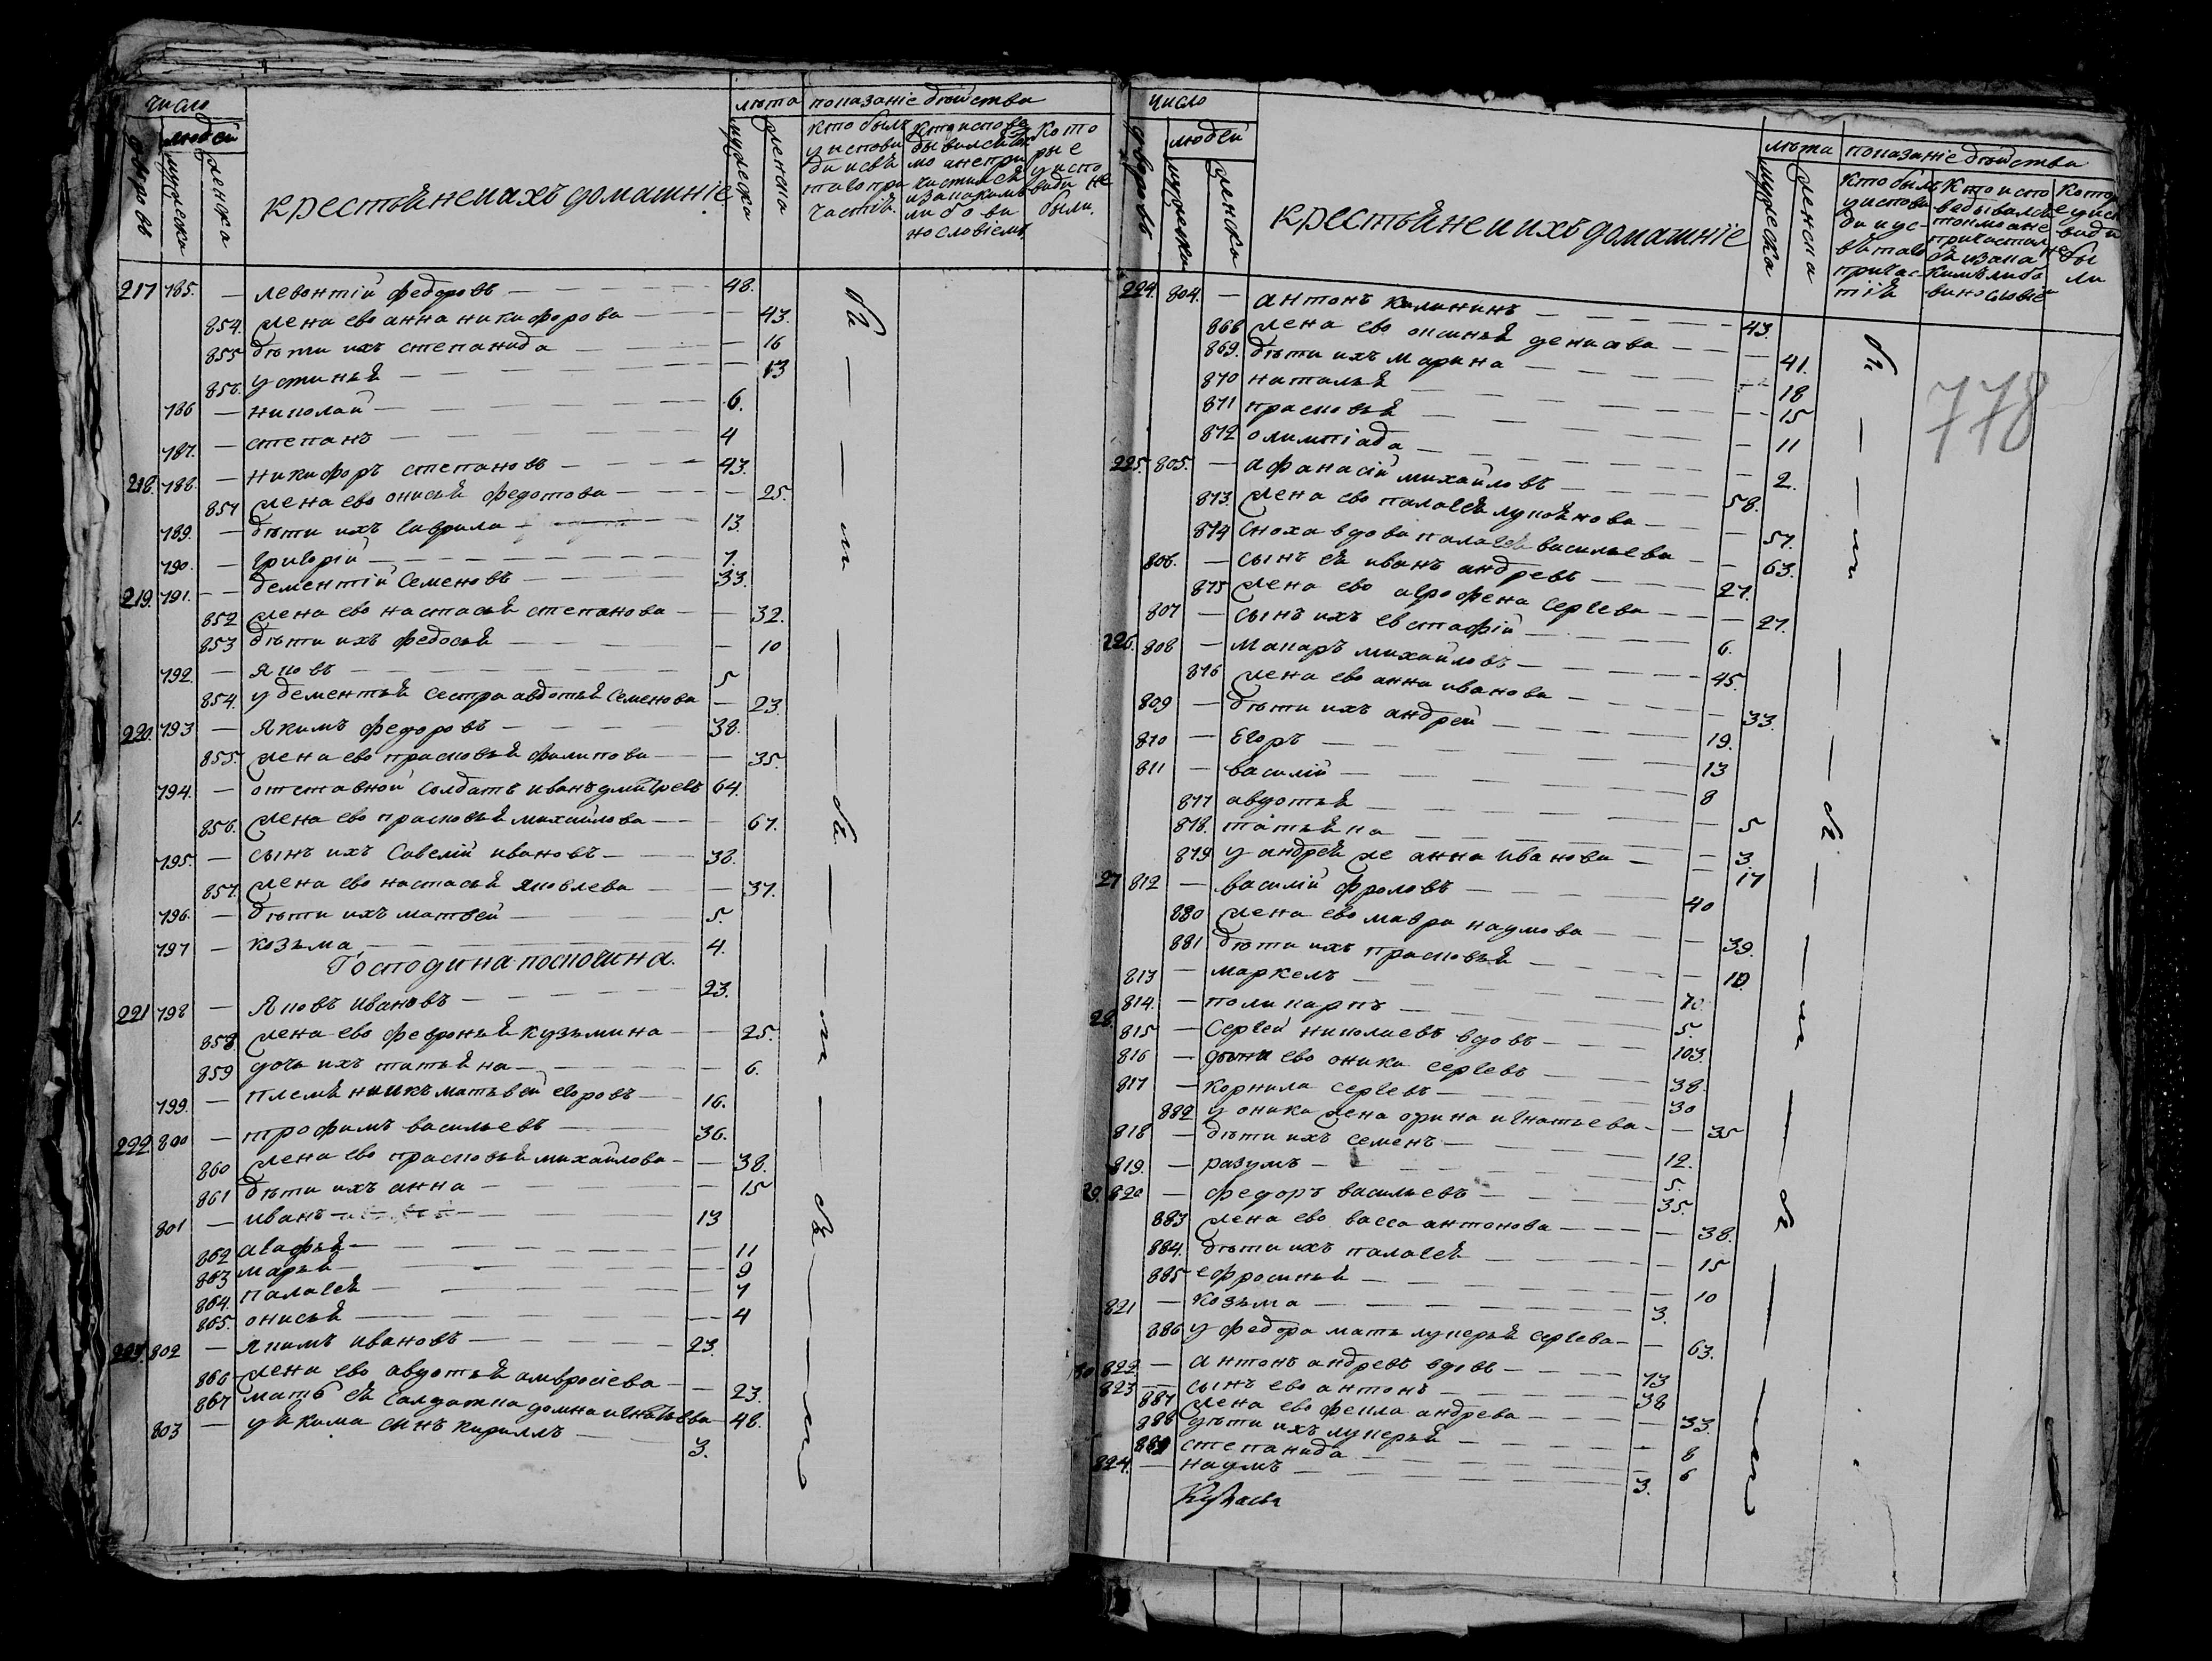 число
людей
дворовъ
мужеска
женска
крестьяне и ихъ домашніе
лѣта
мужеска
женска
показаніе дѣйства
кто былъ
у испове
ди и свѣ
таго при
частія
кто испове
дывался то
мо а не при
частился
и за какимъ
либо ви
нословіемъ
кото
рые
у испо
веди не
были
217 785. — левонтій федоровъ — 48.
854. жена ево анна никифорова — 43.
855 дѣти ихъ степанида — 16
856. устинья — 13
786 — николай — 6.
787. — степанъ — 4
218. 788. — никифоръ степановъ — 43.
851 жена ево онисья федотова — 25.
789. — дѣти ихъ гаврила — 13.
790. — григорій — 7.
219. 791. — дементій семеновъ — 33.
852 жена ево настасья степанова — 32.
853 дѣти ихъ федосья — 10
792. — яковъ — 5
854. у дементья сестра авдотья семенова — 23.
220. 793 — якимъ федоровъ — 38.
855. жена ево прасковья филипова — 35.
794. — отставной солдатъ иванъ дмитревъ 64.
856. жена ево прасковья михайлова — 67.
795. — сынъ ихъ савелій ивановъ — 38.
857. жена ево настасья яковлева — 37.
796. — дѣти ихъ матвей — 5.
797 — козьма — 4.
Господина поскочина.
221 798 — яковъ ивановъ — 23.
858 жена ево февронья кузьмина — 25.
859 дочь ихъ татьяна — 6.
799. — племянникъ матьвей егоровъ — 16.
222. 800 — трофимъ васильевъ — 36.
860 жена ево прасковья михайлова — 38.
861 дѣти ихъ анна — 15
801 — иванъ — 13
862 агафья — 11
863 марья — 9
864. палагея — 7
865. онисья — 4
223. 802 — якимъ ивановъ — 23.
866 жена ево авдотья амвросіева — 23.
867 мать ея салдатка домна игнатьева — 48.
803 — у якима сынъ кириллъ — 3.
число
людей
дворовъ
мужеска
женска
крестьяне и ихъ домашніе
лѣта
мужеска
женска
показаніе дѣйства
кто былъ
у испове
ди и свя
таго
причас
тія
кто испо
ведывался
токмо а не
причастил
ся и за ка
кимъ либо
винословіе
778
224. 804. — антонъ калининъ — 43.
868 жена ево оксинья денисова — 41.
869. дѣти ихъ марина — 18
870 наталья — 15
871 прасковья — 11
872 олимпіада — 2.
225. 805. — афанасій михайловъ — 58.
873. жена ево палагея лукьянова — 57.
874 сноха вдова палагея васильева — 63.
806. — сынъ ея иванъ андревъ — 27.
875 жена ево агрофена сергева — 27.
807 — сынъ ихъ евстафій — 6.
226. 808 — макаръ михайловъ — 45.
876 жена ево анна иванова — 33.
809 — дѣти ихъ андрей — 19.
810 — егоръ — 13
811 — василій — 8
877 авдотья — 5
878. татьяна — 3.
879 у андрея же анна иванова — 17
27 812 — василій фроловъ — 40
880 жена ево мавра наумова — 39.
881 дѣти ихъ прасковья — 10.
813 — маркелъ — 10.
814. — поликарпъ — 5.
28. 815 — сергей николаевъ вдовъ — 103.
816 — дѣти ево оника сергевъ — 38.
817 — корнила сергевъ — 30
882 у оники жена орина игнатьева — 35
818 — дѣти ихъ семенъ — 12.
819. — разумъ — 5.
29. 820 — федоръ васильевъ — 35.
883 жена ево васса антонова — 38.
884. дѣти ихъ палагея — 15
885 ефросинья — 10
821 — козьма — 3.
886 у федора мать лукерья сергева — 63.
30 822 — антонъ андревъ вдовъ — 73
823 — сынъ ево антонъ — 38
887 жена ево фекла андрева — 33.
888 дѣти ихъ лукерья — 8
889 степанида — 6
824. — наумъ — 3.